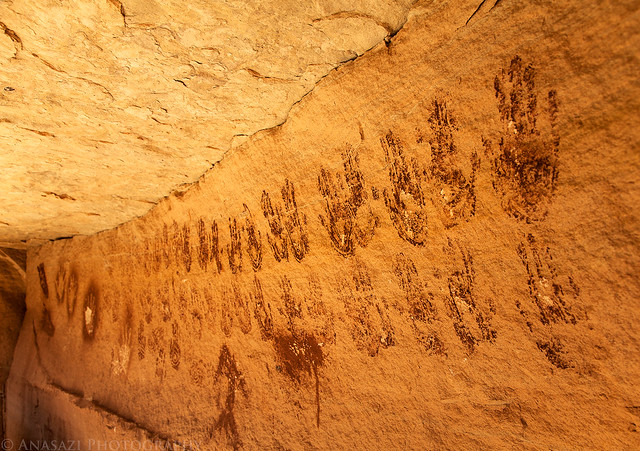 © ANASAZI PHOTOGRAPHY